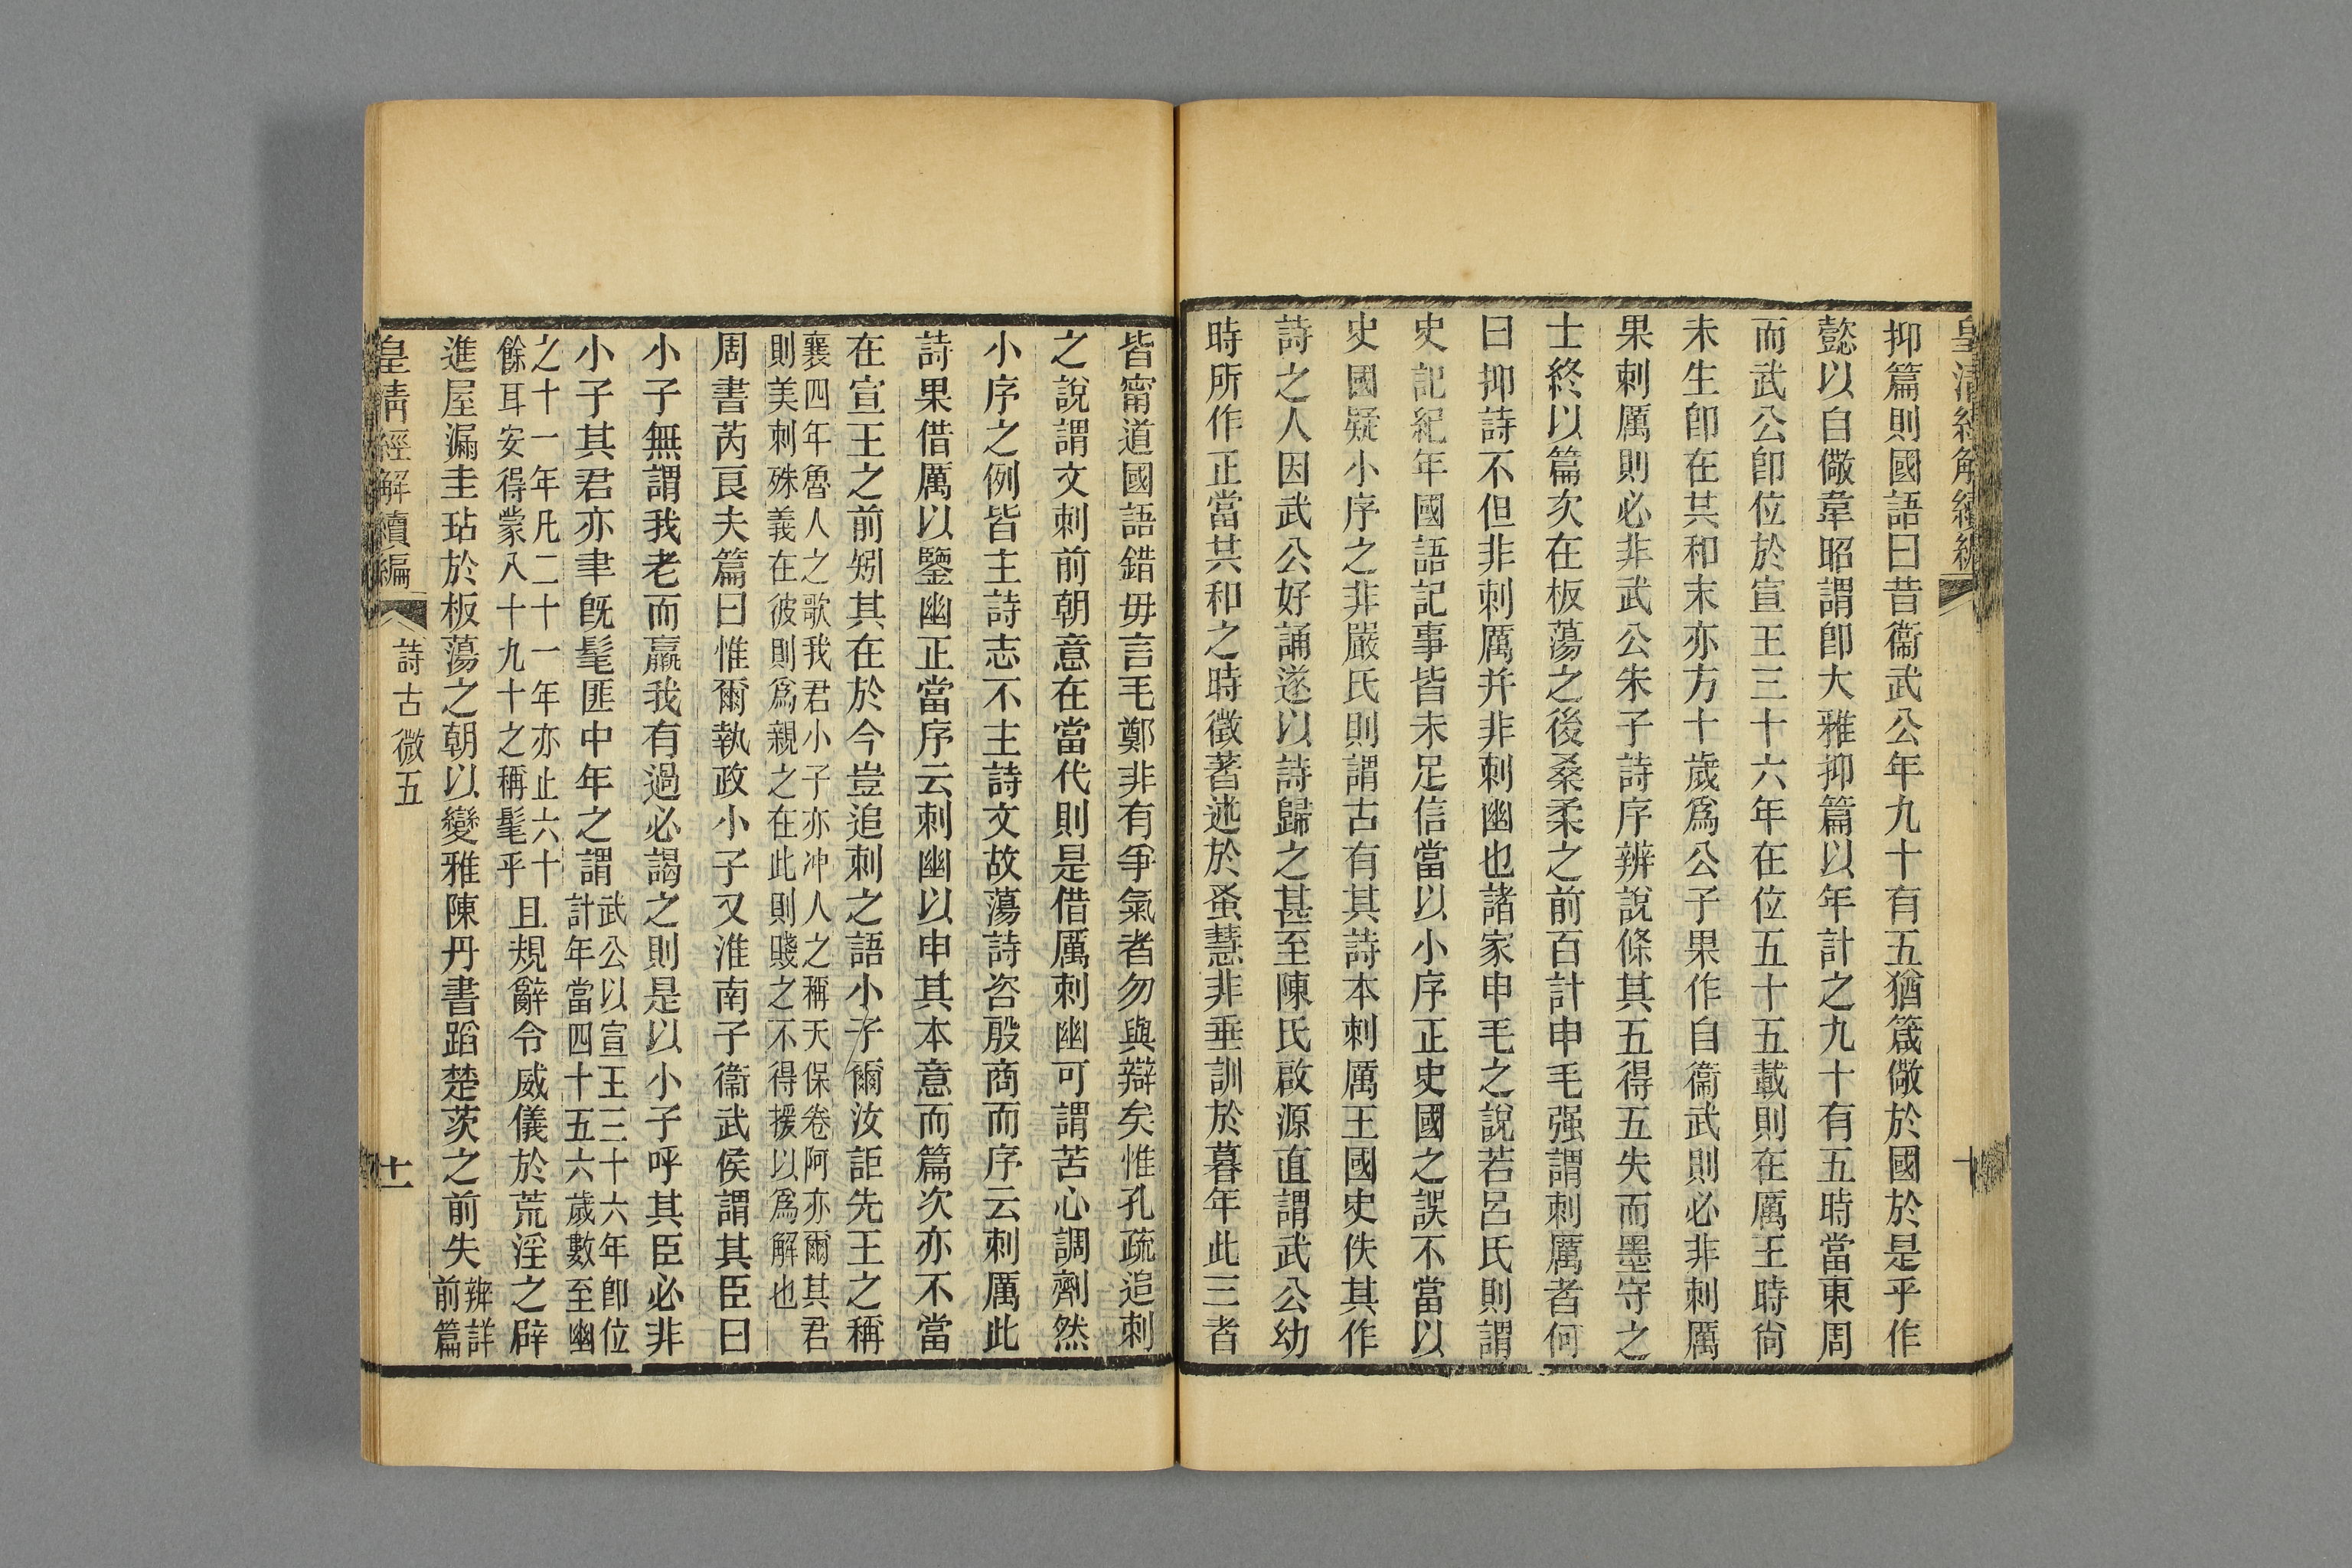 皇清經解續編
十
抑篇則國語曰昔衞武公年九十有五猶箴儆於國於是乎作
懿以自儆韋昭謂卽大雅抑篇以年計之九十有五時當東周
而武公卽位於宣王三十六年在位五十五載則在厲王時尙
未生卽在共和末亦方十歲爲公子果作自衞武則必非刺厲
果刺厲則必非武公朱子詩序辨說條其五得五失而墨守之
士終以篇次在板蕩之後桑柔之前百計申毛强謂刺厲者何
曰抑詩不但非刺厲并非刺幽也諸家申毛之說若呂氏則謂
史記紀年國語記事皆未足信當以小序正史國之誤不當以
史國疑小序之非嚴氏則謂古有其詩本刺厲王國史佚其作
詩之人因武公好誦遂以詩歸之甚至陳氏啟源直謂武公幼
時所作正當共和之時徵著述於蚤慧非垂訓於暮年此三者
皆甯道國語錯毋言毛鄭非有爭氣者勿與辯矣惟孔疏追刺
之說謂文刺前朝意在當代則是借厲刺幽可謂苦心調劑然
小序之例皆主詩志不主詩文故蕩詩咨殷商而序云刺厲此
詩果借厲以鑒幽正當序云刺幽以申其本意而篇次亦不當
在宣王之前矧其在於今豈追刺之語小子爾汝詎先王之稱
襄四年魯人之歌我君小子亦冲人之稱天保卷阿亦爾其君
則美刺殊義在彼則爲親之在此則賤之不得援以爲解也
周書芮良夫篇曰惟爾執政小子又淮南子衞武侯謂其臣曰
小子無謂我老而羸我有過必謁之則是以小子呼其臣必非
小子其君亦聿旣髦匪中年之謂
武公以宣王三十六年卽位
計年當四十五六歲數至幽
之十一年凡二十一年亦止六十
餘耳安得蒙八十九十之稱髦乎
且規辭令威儀於荒淫之辟
進屋漏圭玷於板蕩之朝以變雅陳丹書蹈楚茨之前失
辨詳
前篇
皇清經解續編
詩古微五
十一